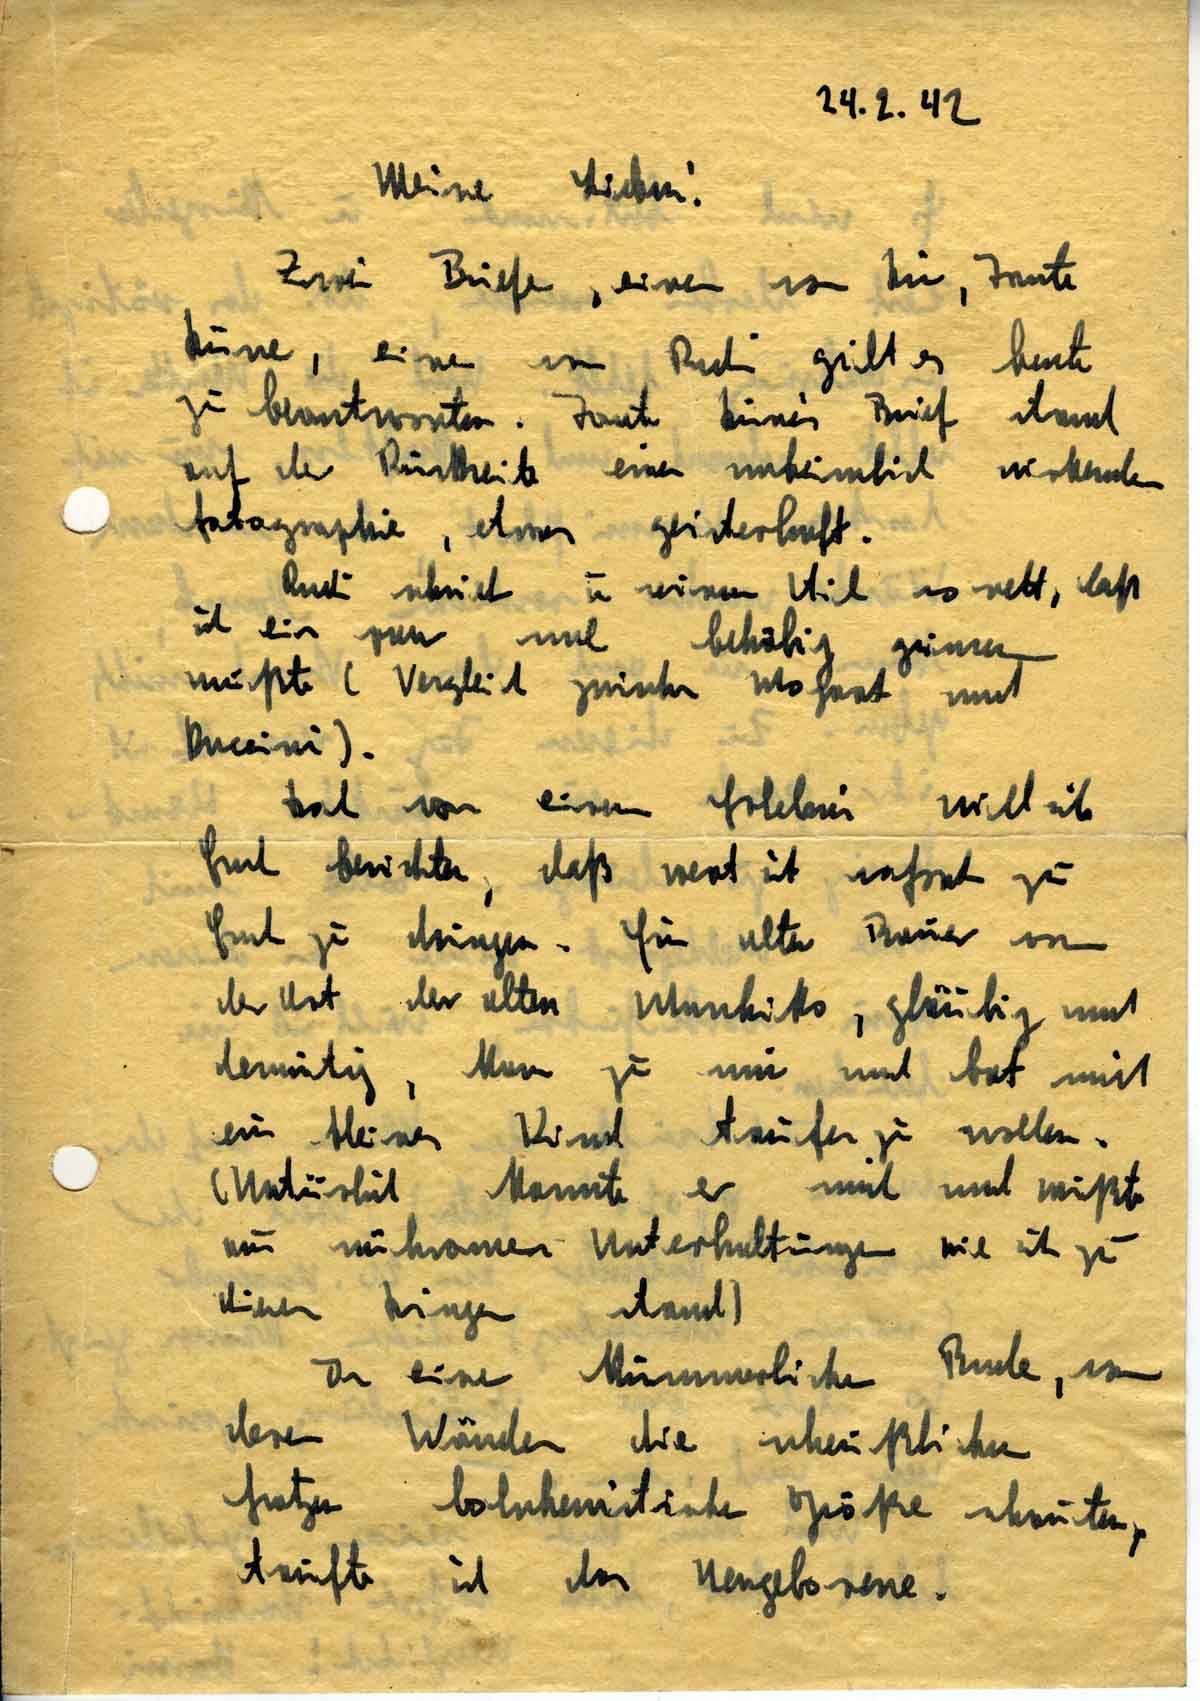 24.2.42
Meine Lieben!
Zwei Briefe, einen von Dir, Tante
einen von Rudi gilt es heute
zu beantworten. Tante Brief stand
auf der Rückseite einer unheimlich wirkenden
Fotographie, etwas geisterhaft.
Rudi schrieb in seinem Stil so nett, daß
ich ein paar mal behäbig grinsen
mußte (Vergleich zwischen Mozart und
Puccini).
Doch von einem Erlebnis will ich
Euch berichten, daß wert ist sofort zu
Euch zu dringen. Ein alter Bauer von
der Art der alten gläubig und
demütig, kam zu mir und bat mich
ein kleines Kind taufen zu wollen.
(Natürlich kannte er mich und wußte
aus mühsamen Unterhaltungen wie ich zu
diesen Dingen stand)
In einer kümmerlichen Bude, von
deren Wänden die scheußlichen
Fratzen bolschewistischer Größe schauten,
taufte ich das Neugeborene.